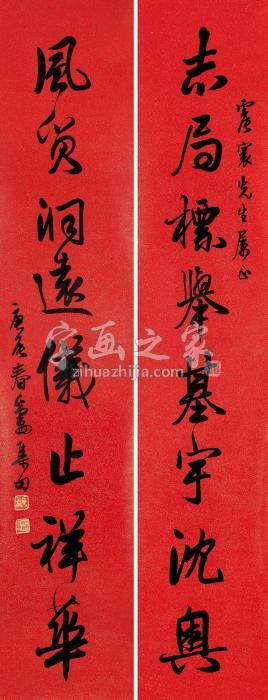 寰先生属正
志局標舉基宇沈奧
風質洞遠儀止祥華
庚辰春集句
字画之家
zihuazhijia.com